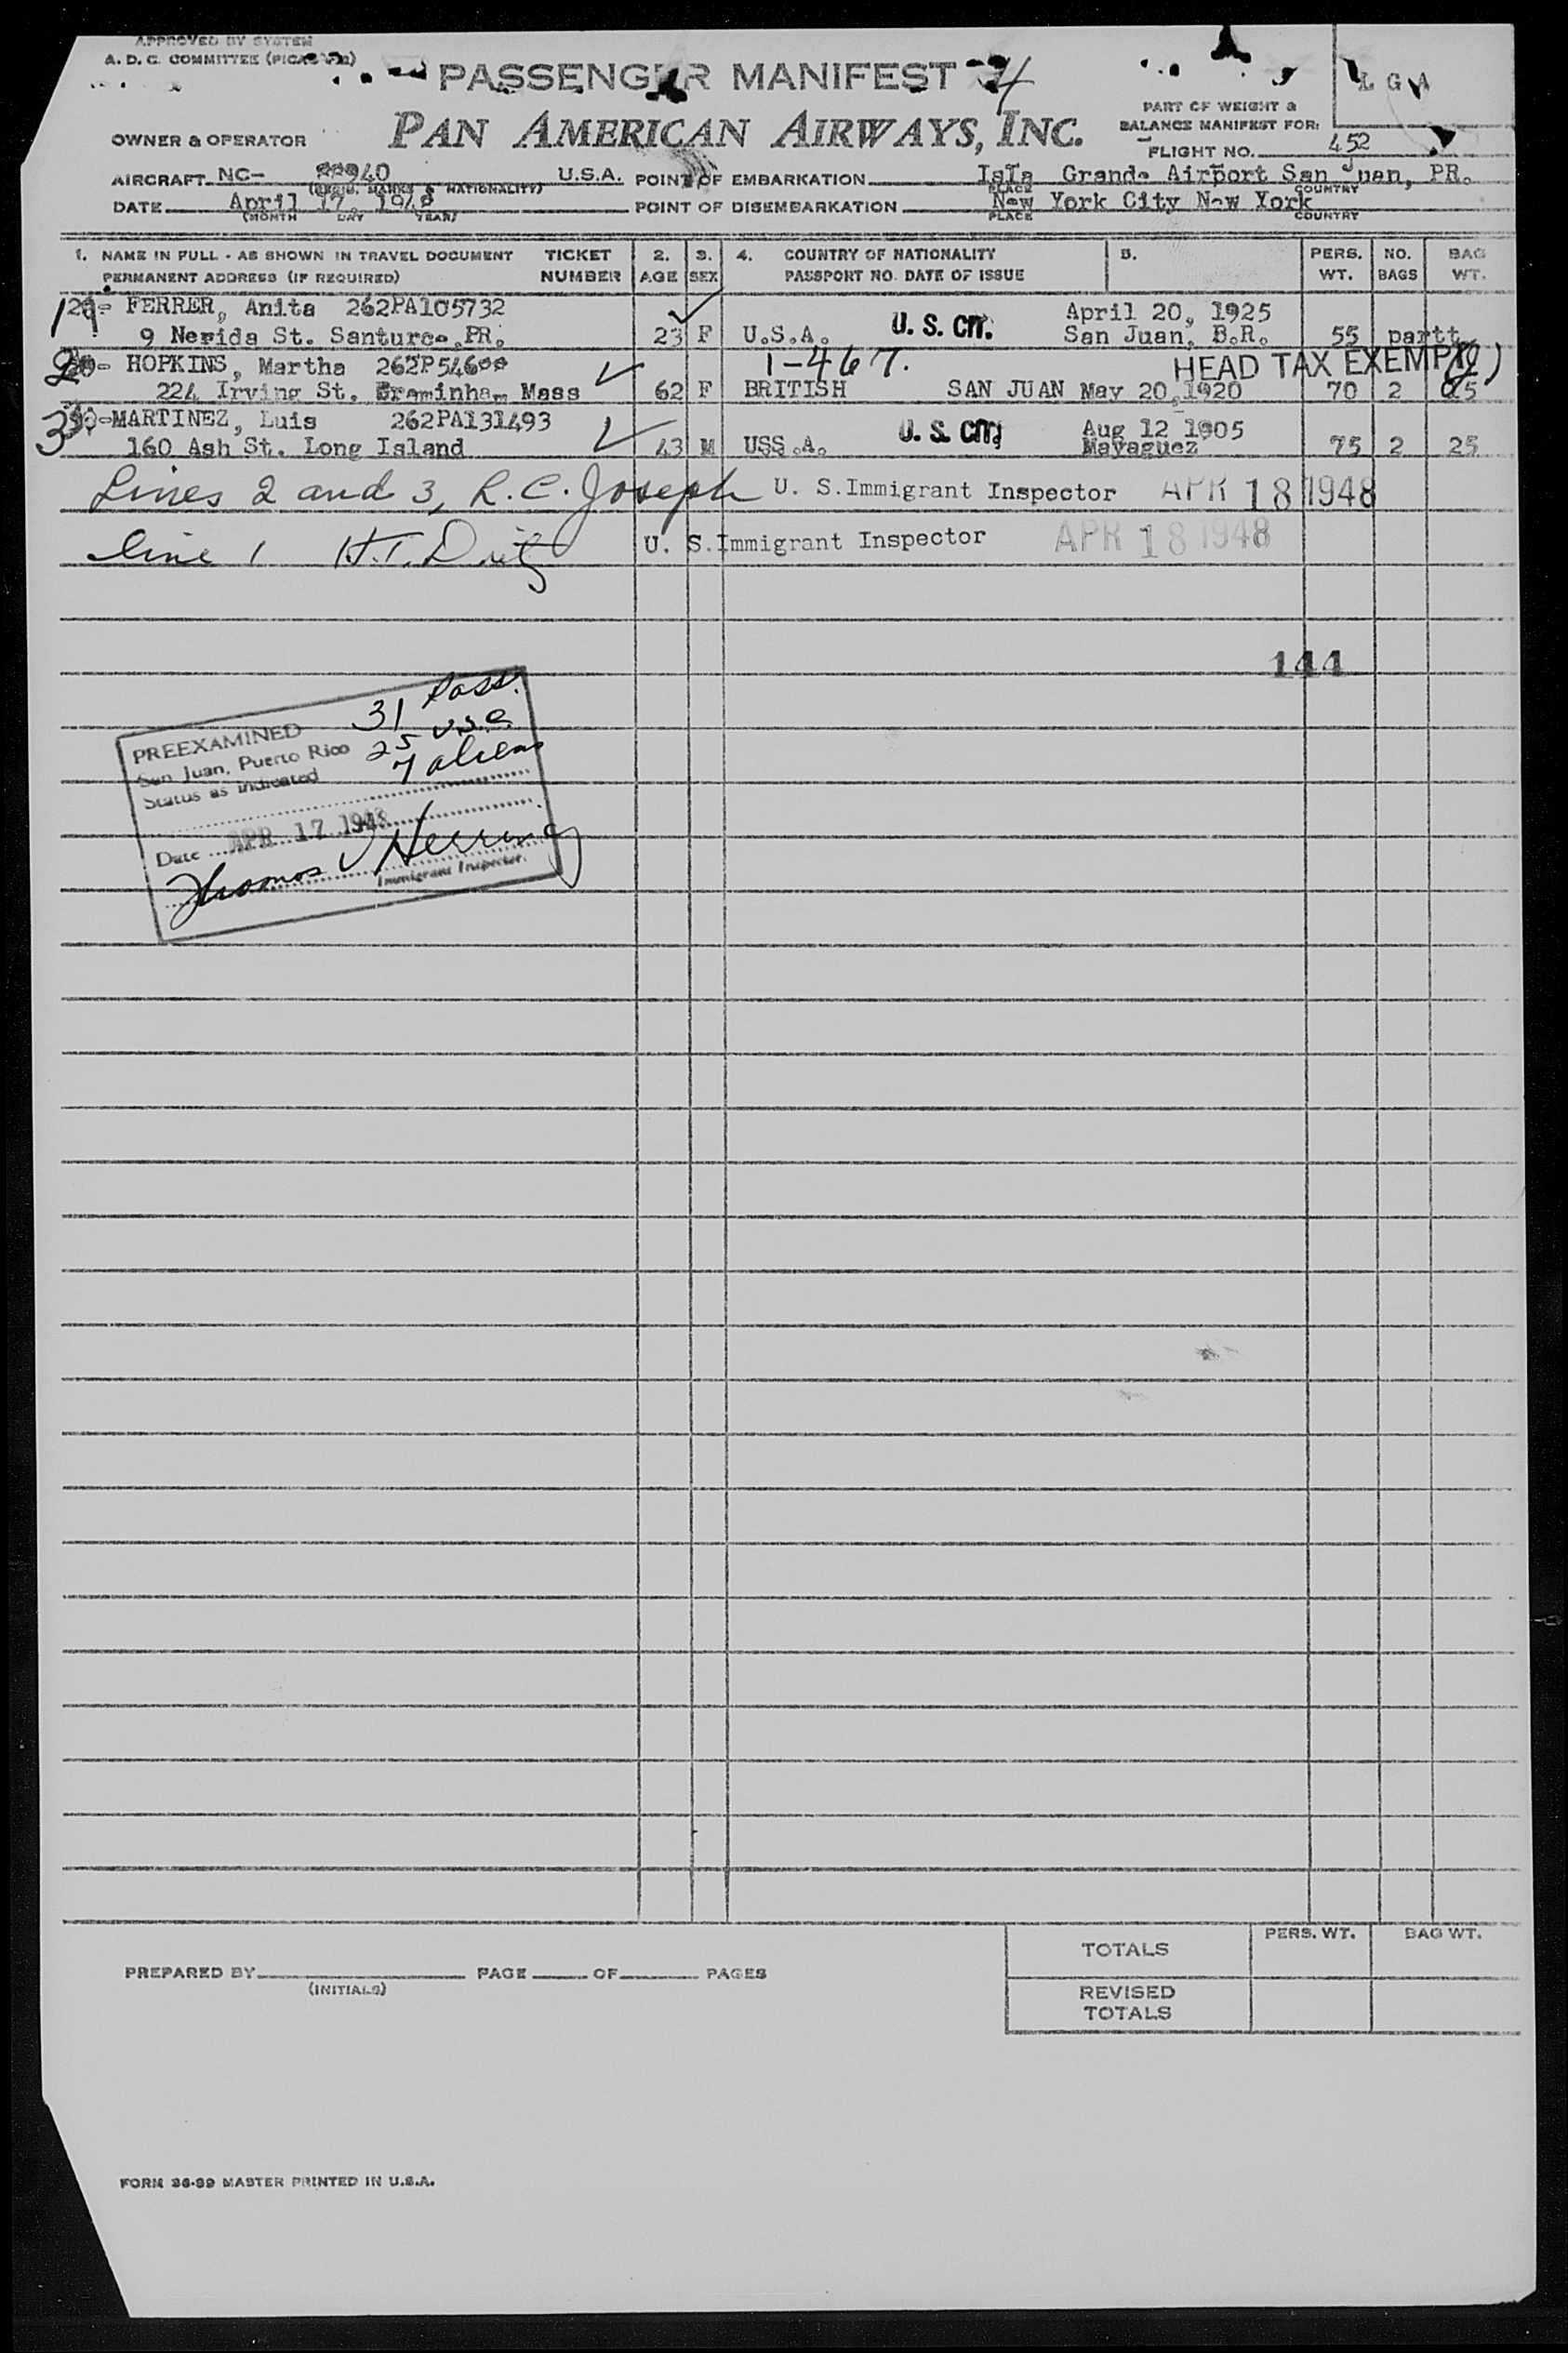 APPROVED BY SYSTEM
A. D. C. COMMITTEE
PASSENGER MANIFEST 4
L G A
PAN AMERICAN AIRWAYS, INC.
PART OF WEIGHT &
BALANCE MANIFEST FOR:
OWNER & OPERATOR
FLIGHT NO. 452
AIRCRAFT NC- U.S.A. POINT OF EMBARKATION Isla Grande Airport San Juan, PR.
(REGIS. MARKS & NATIONALITY) PLACE COUNTRY
DATE April 17, 1948 POINT OF DISEMBARKATION New York City New York
(MONTH DAY YEAR) PLACE COUNTRY
1. NAME IN FULL - AS SHOWN IN TRAVEL DOCUMENT TICKET 2. 3. 4. COUNTRY OF NATIONALITY 5. PERS. NO. BAG
PERMANENT ADDRESS (IF REQUIRED) NUMBER AGE SEX PASSPORT NO. DATE OF ISSUE WT. BAGS WT.
1 FERRER, Anita 262PA105732 April 20, 1925
9 Nerida St. Santurce, PR. 23 F U.S.A. U. S. CIT. San Juan, B.R. 55 partt
2 HOPKINS, Martha 1-467. HEAD TAX EXEMPT
224 Irving St. Mass 62 F BRITISH SAN JUAN May 20, 1920 70 2
3 MARTINEZ, Luis 262PA131493 U. S. CIT. Aug 12 1905
160 Ash St. Long Island 43 M USS.A. Mayaguez 75 2 25
Lines 2 and 3, R. C. Joseph U. S. Immigrant Inspector APR 18 1948
line 1 H.T. U. S. Immigrant Inspector APR 18 1948
144
31 Pass.
PREEXAMINED 25 U.S.C.
San Juan, Puerto Rico 7 aliens
Status as indicated
Date APR 17 1948
Thomas J Herring
Immigrant Inspector.
TOTALS PERS. WT. BAG WT.
PREPARED BY PAGE OF PAGES
(INITIALS)
REVISED
TOTALS
FORM 36-39 MASTER PRINTED IN U.S.A.